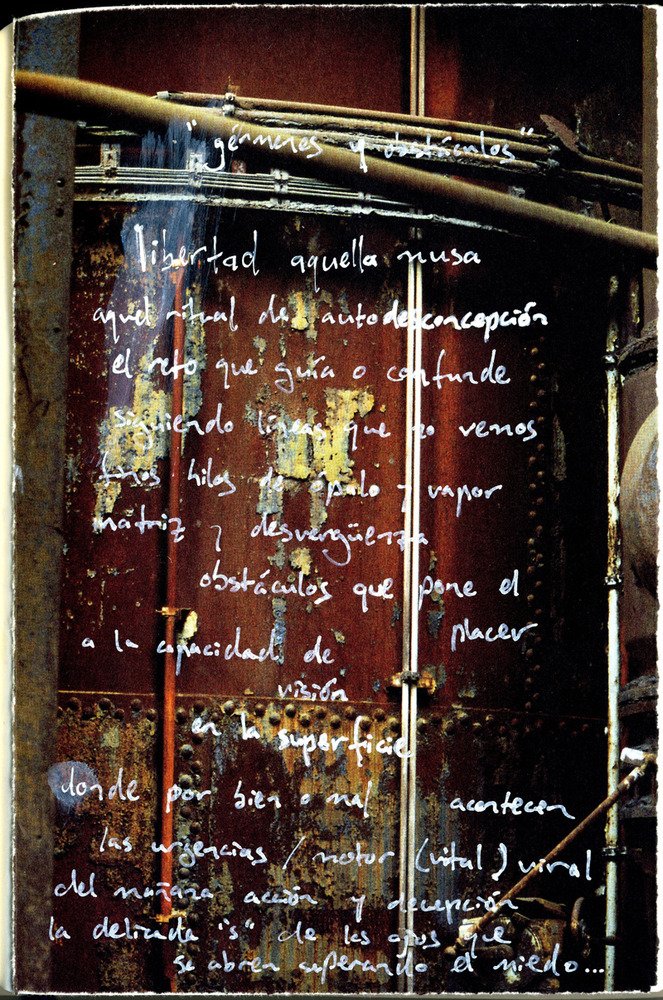 "gérmenes y obstáculos"
libertad aquella musa
aquel ritual de autodesconcepción
el reto que guía o confunde
siguiendo líneas que no vemos
finos hilos de ópalo y vapor
matriz y desvergüenza
obstáculos que pone el
placer
a la capacidad de
visión
en la superficie
donde por bien o mal acontecen
las urgencias / motor (vital) viral
del mañana acción y decepción
la delicada "s" de los ojos que
se abren superando el miedo...